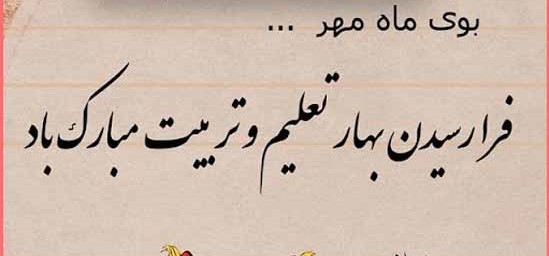 بوی ماه مهر ...
فرا رسیدن بهار تعلیم و تربیت مبارک باد